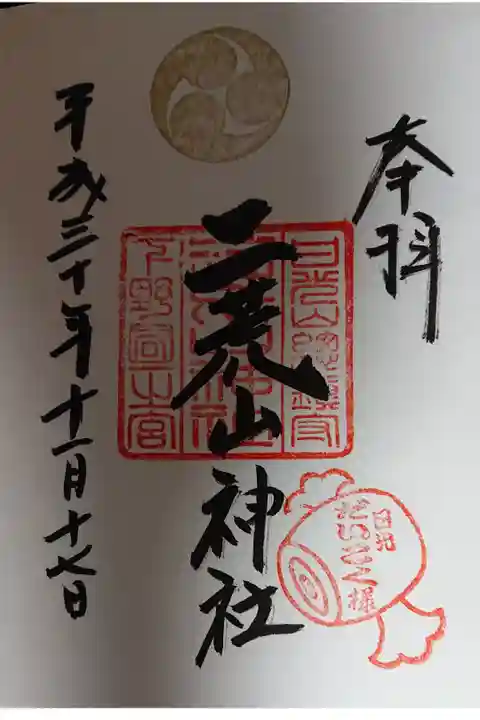 奉拝
日光山総鎮守
二荒山神社
下野国一之宮
日光
だいこく様
平成三十年十一月十七日